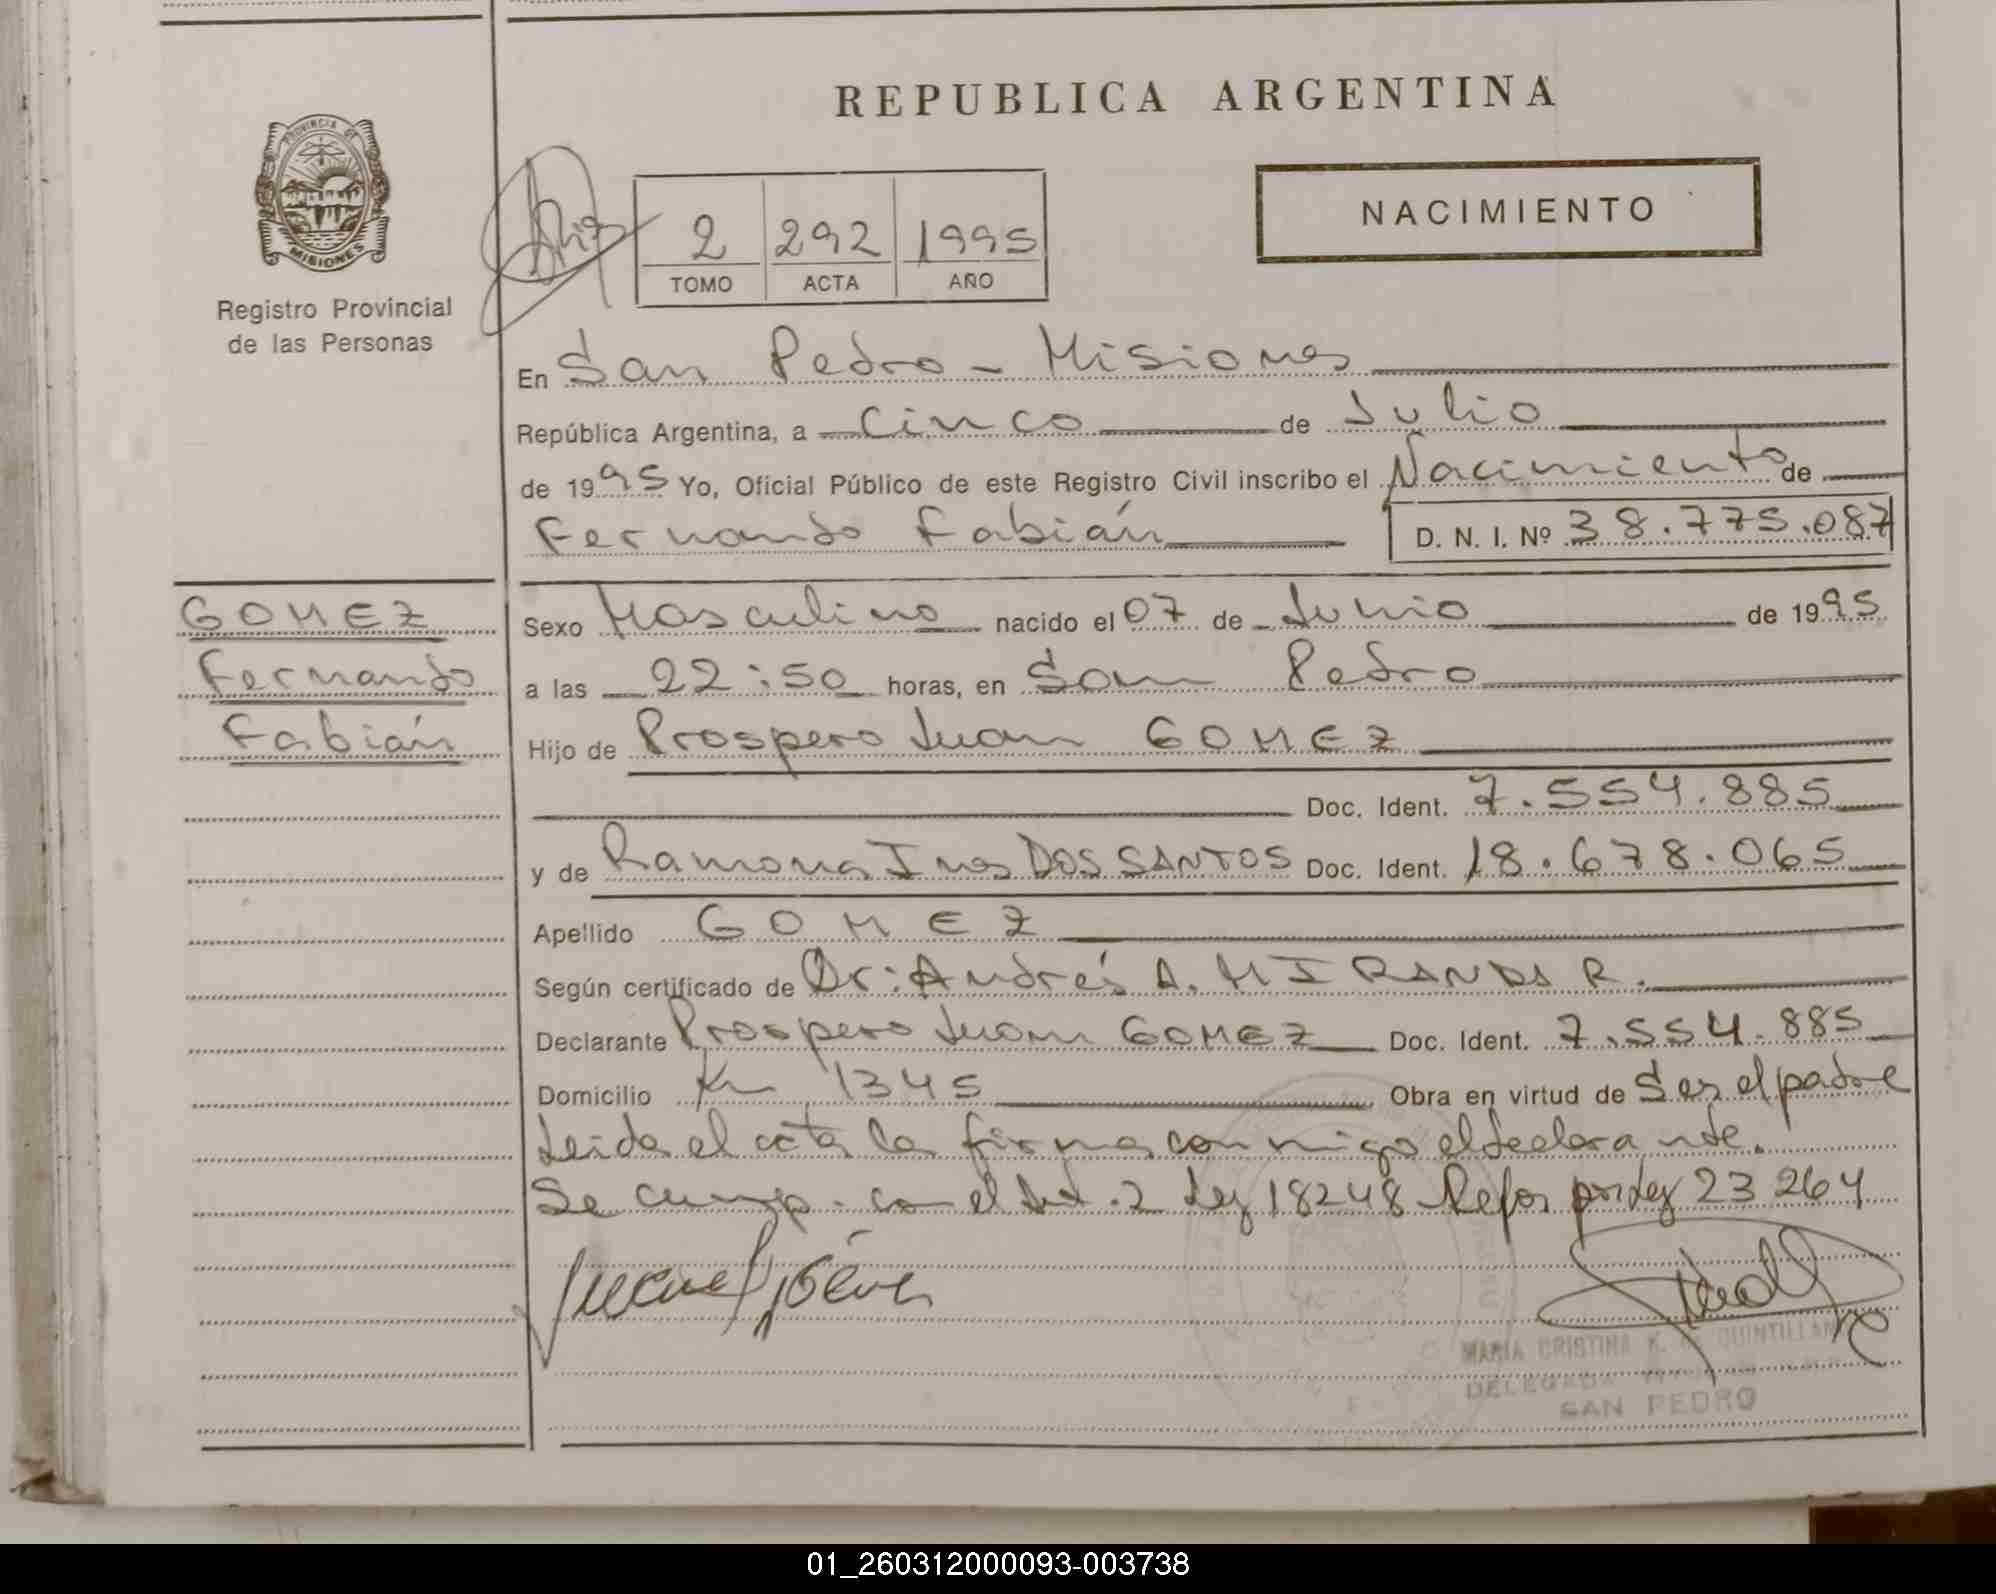 REPUBLICA ARGENTINA
PROVINCIA DE
MISIONES
Registro Provincial
de las Personas
2 292 1995
TOMO ACTA AÑO
NACIMIENTO
En San Pedro - Misiones
República Argentina, a Cinco de Julio
de 1995 Yo, Oficial Público de este Registro Civil inscribo el Nacimiento de
Fernando Fabián D. N. I. Nº 38.775.087
GOMEZ
Fernando
Fabián
Sexo Masculino nacido el 07 de Junio de 1995
a las 22:50 horas, en San Pedro
Hijo de Prospero Juan GOMEZ
Doc. Ident. 7.554.885
y de Ramona Ines DOS SANTOS Doc. Ident. 18.678.065
Apellido GOMEZ
Según certificado de Dr: Andrés A. MIRANDA R.
Declarante Prospero Juan GOMEZ Doc. Ident. 7.554.885
Domicilio Km 1345 Obra en virtud de Ser el padre
Leida el acta la firma conmigo el declarante.
Se cump. con el Art. 2 Ley 18248 Refor por Ley 23264
MARIA CRISTINA K. DE QUINTILLAN
DELEGADA
SAN PEDRO
01_260312000093-003738